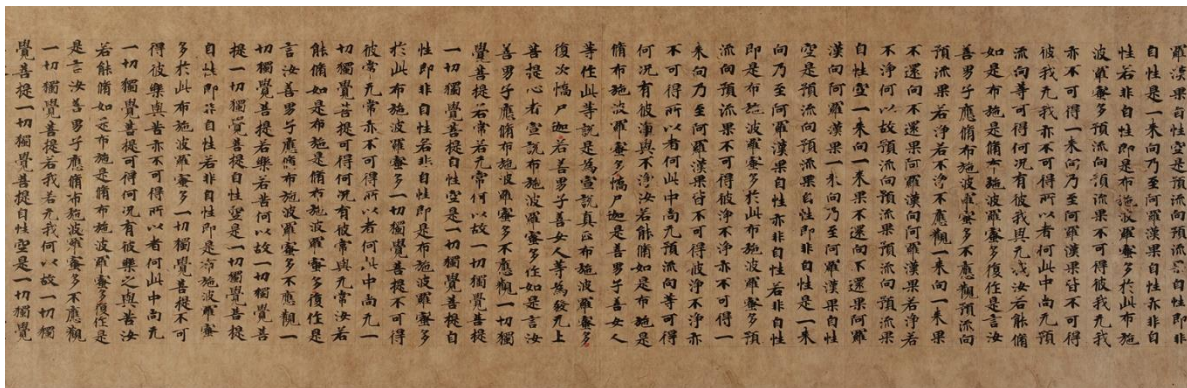 羅漢果自性空是預流向預流果自性即非
自性是一来向乃至阿羅漢果自性亦非自
性若非自性即是布施波羅蜜多於此布施
波羅蜜多預流向預流果不可得彼我无我
亦不可得一来向乃至阿羅漢果皆不可得
彼我无我亦不可得所以者何此中尚无預
流向等可得何況有彼我與无我汝若能脩
如是布施是脩布施波羅蜜多復作是言汝
善男子應脩布施波羅蜜多不應觀預流向
預流果若淨若不淨不應觀一来向一来果
不還向不還果阿羅漢向阿羅漢果若淨若
不淨何以故預流向預流果預流向預流果
自性空一来向一来果不還向不還果阿羅
漢向阿羅漢果一来向乃至阿羅漢果自性
空是預流向預流果自性即非自性是一来
向乃至阿羅漢果自性亦非自性若非自性
即是布施波羅蜜多於此布施波羅蜜多預
流向預流果不可得彼淨不淨亦不可得一
来向乃至阿羅漢果皆不可得彼淨不淨亦
不可得所以者何此中尚无預流向等可得
何況有彼淨與不淨汝若能脩如是布施是
脩布施波羅蜜多憍尸迦是善男子善女人
等作此等說是為宣說真正布施波羅蜜多
復次憍尸迦若善男子善女人等為發无上
菩提心者宣說布施波羅蜜多作如是言汝
善男子應脩布施波羅蜜多不應觀一切獨
覺菩提若常若无常何以故一切獨覺菩提
一切獨覺菩提自性空是一切獨覺菩提自
性即非自性若非自性即是布施波羅蜜多
於此布施波羅蜜多一切獨覺菩提不可得
彼常无常亦不可得所以者何此中尚无一
切獨覺菩提可得何況有彼常與无常汝若
能脩如是布施是脩布施波羅蜜多復作是
言汝善男子應脩布施波羅蜜多不應觀一
切獨覺菩提若樂若苦何以故一切獨覺菩
提一切獨覺菩提自性空是一切獨覺菩提
自性即非自性若非自性即是布施波羅蜜
多於此布施波羅蜜多一切獨覺菩提不可
得彼樂與苦亦不可得所以者何此中尚无
一切獨覺菩提可得何況有彼樂之與苦汝
若能脩如是布施是脩布施波羅蜜多復作
是言汝善男子應脩布施波羅蜜多不應觀
一切獨覺菩提若我若无我何以故一切獨
覺菩提一切獨覺菩提自性空是一切獨覺